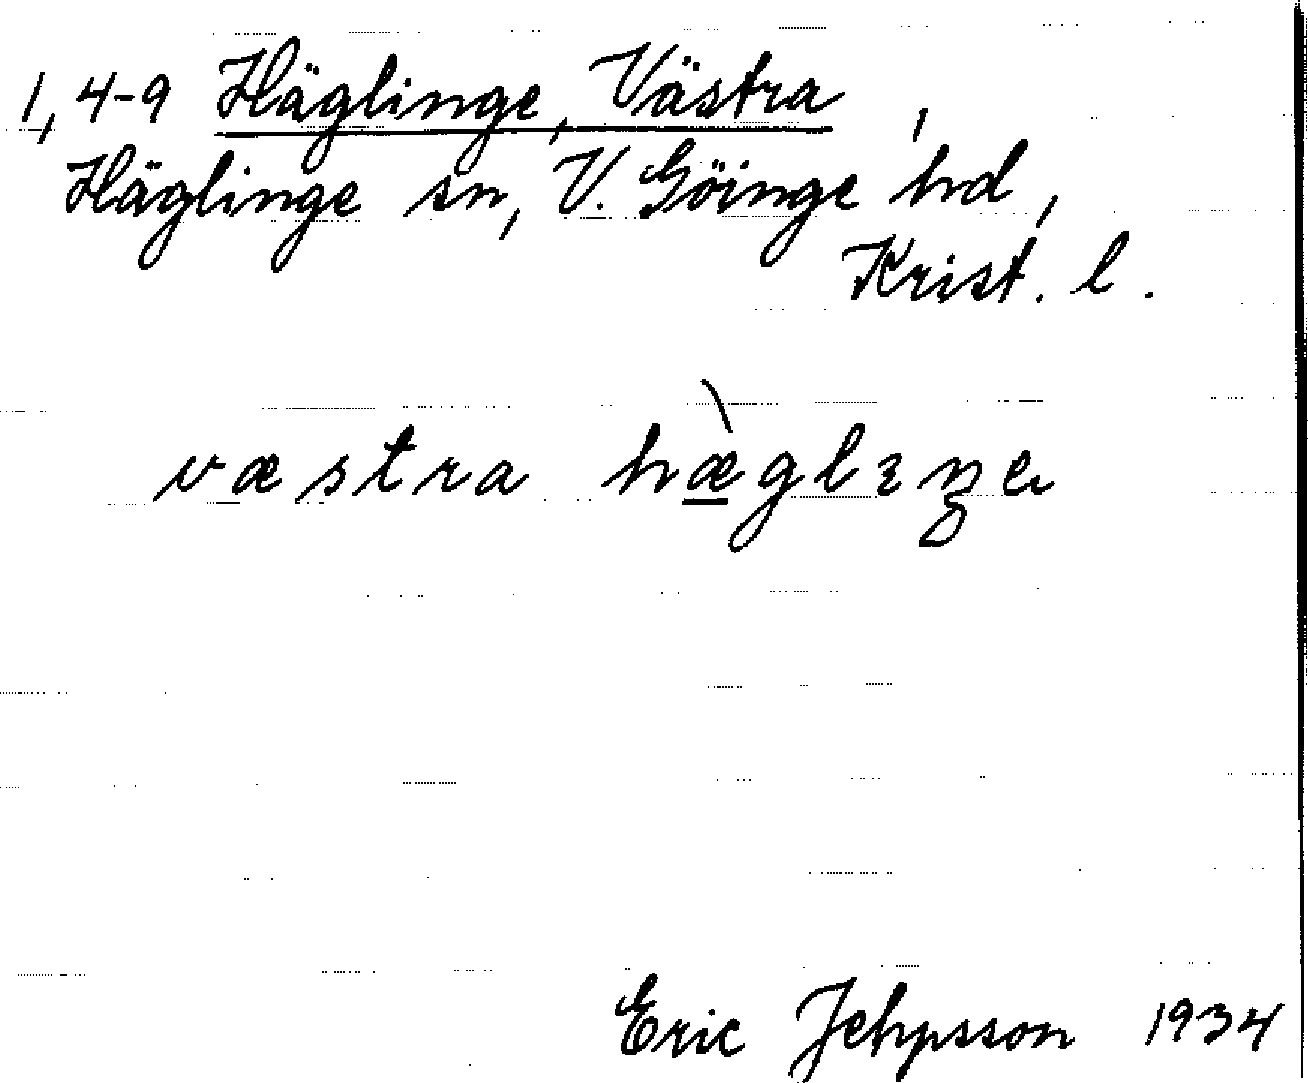 1, 4-9 Häglinge, Västra,
Häglinge sn, V. Göinge hd,
Krist. l.
væstra hæ̀glıŋe
Eric Jehpsson 1934